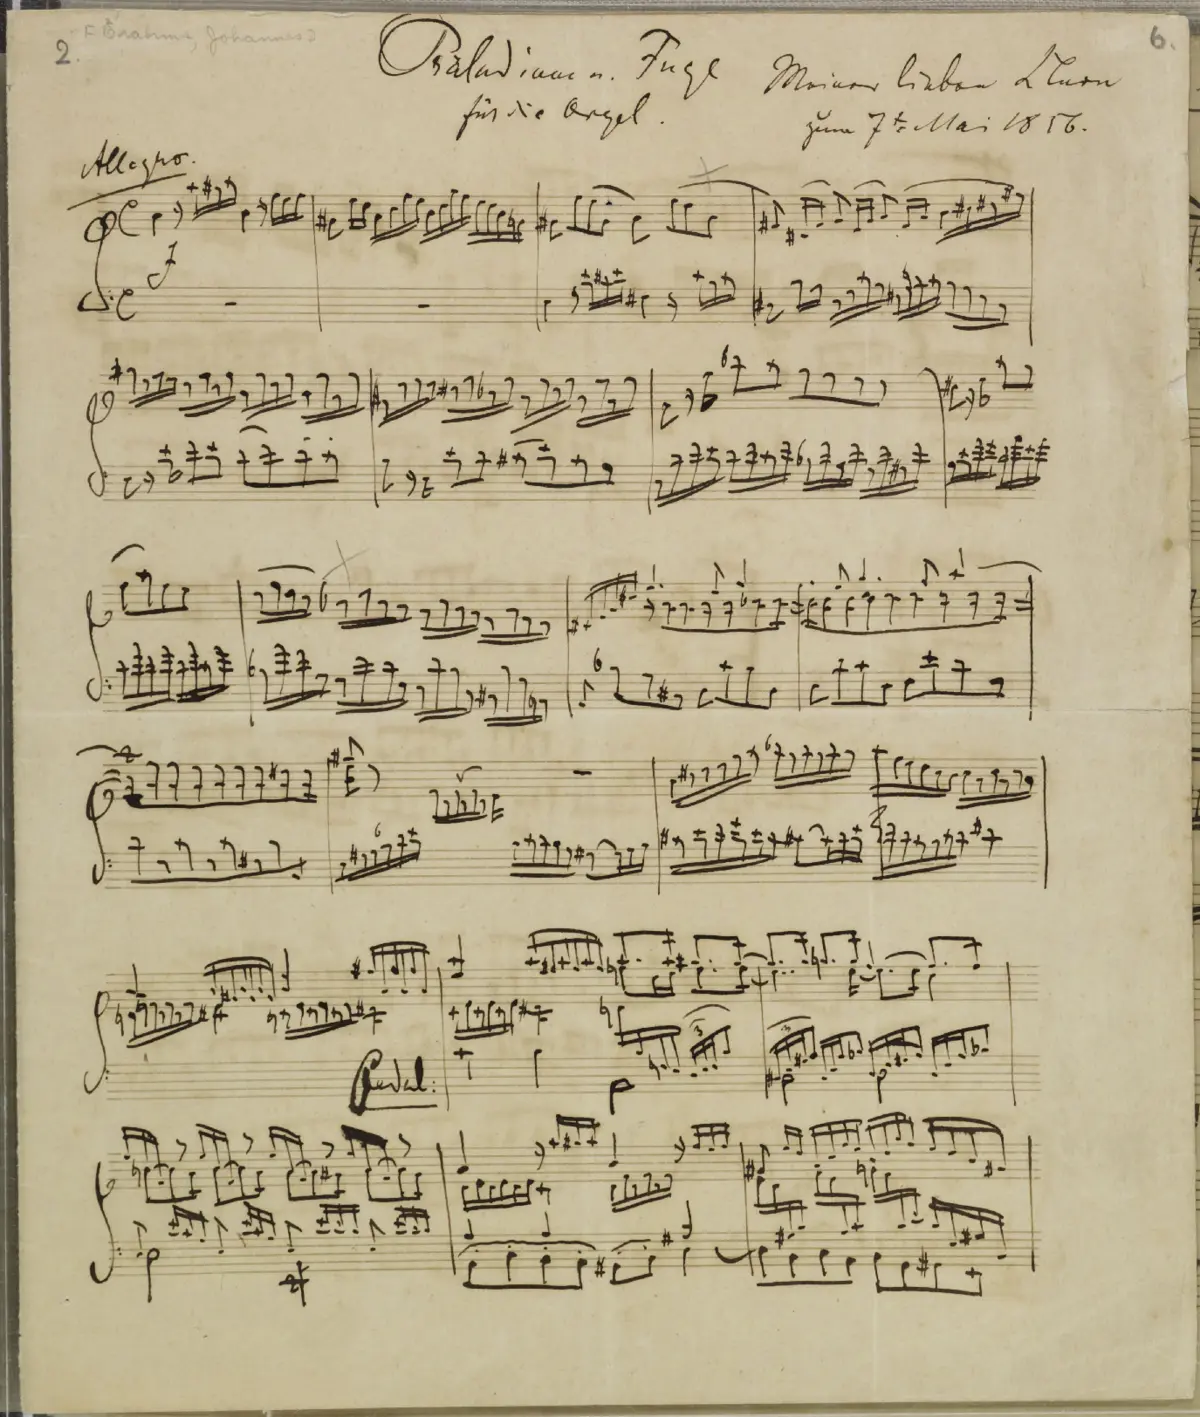 2. [Brahms, Johannes] 6.
Präludium u. Fuge
für die Orgel.
Meiner lieben Clara
zum 7t. Mai 1856.
Allegro.
f
Pedal:
p
p
3
3
p
p